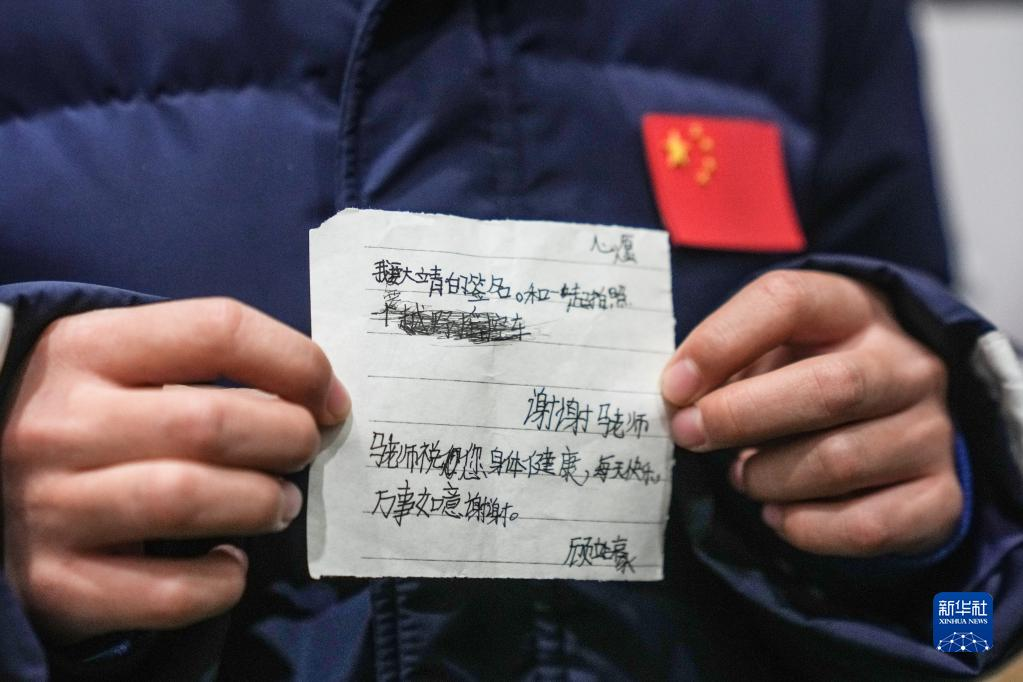 心愿
我要大靖的签名。和一起拍照
谢谢马老师
马老师祝您身体健康，每天快乐，
万事如意谢谢。
新华社
XINHUA NEWS